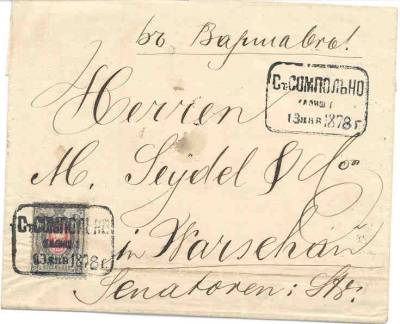 въ Варшаву!
Ст. СОМПОЛЬНО
13 ЯНВ 1878 г.
Herren
M. Seydel & Co
Ст. СОМПОЛЬНО
13 ЯНВ 1878 г.
in Warschau
Senatoren: Str.